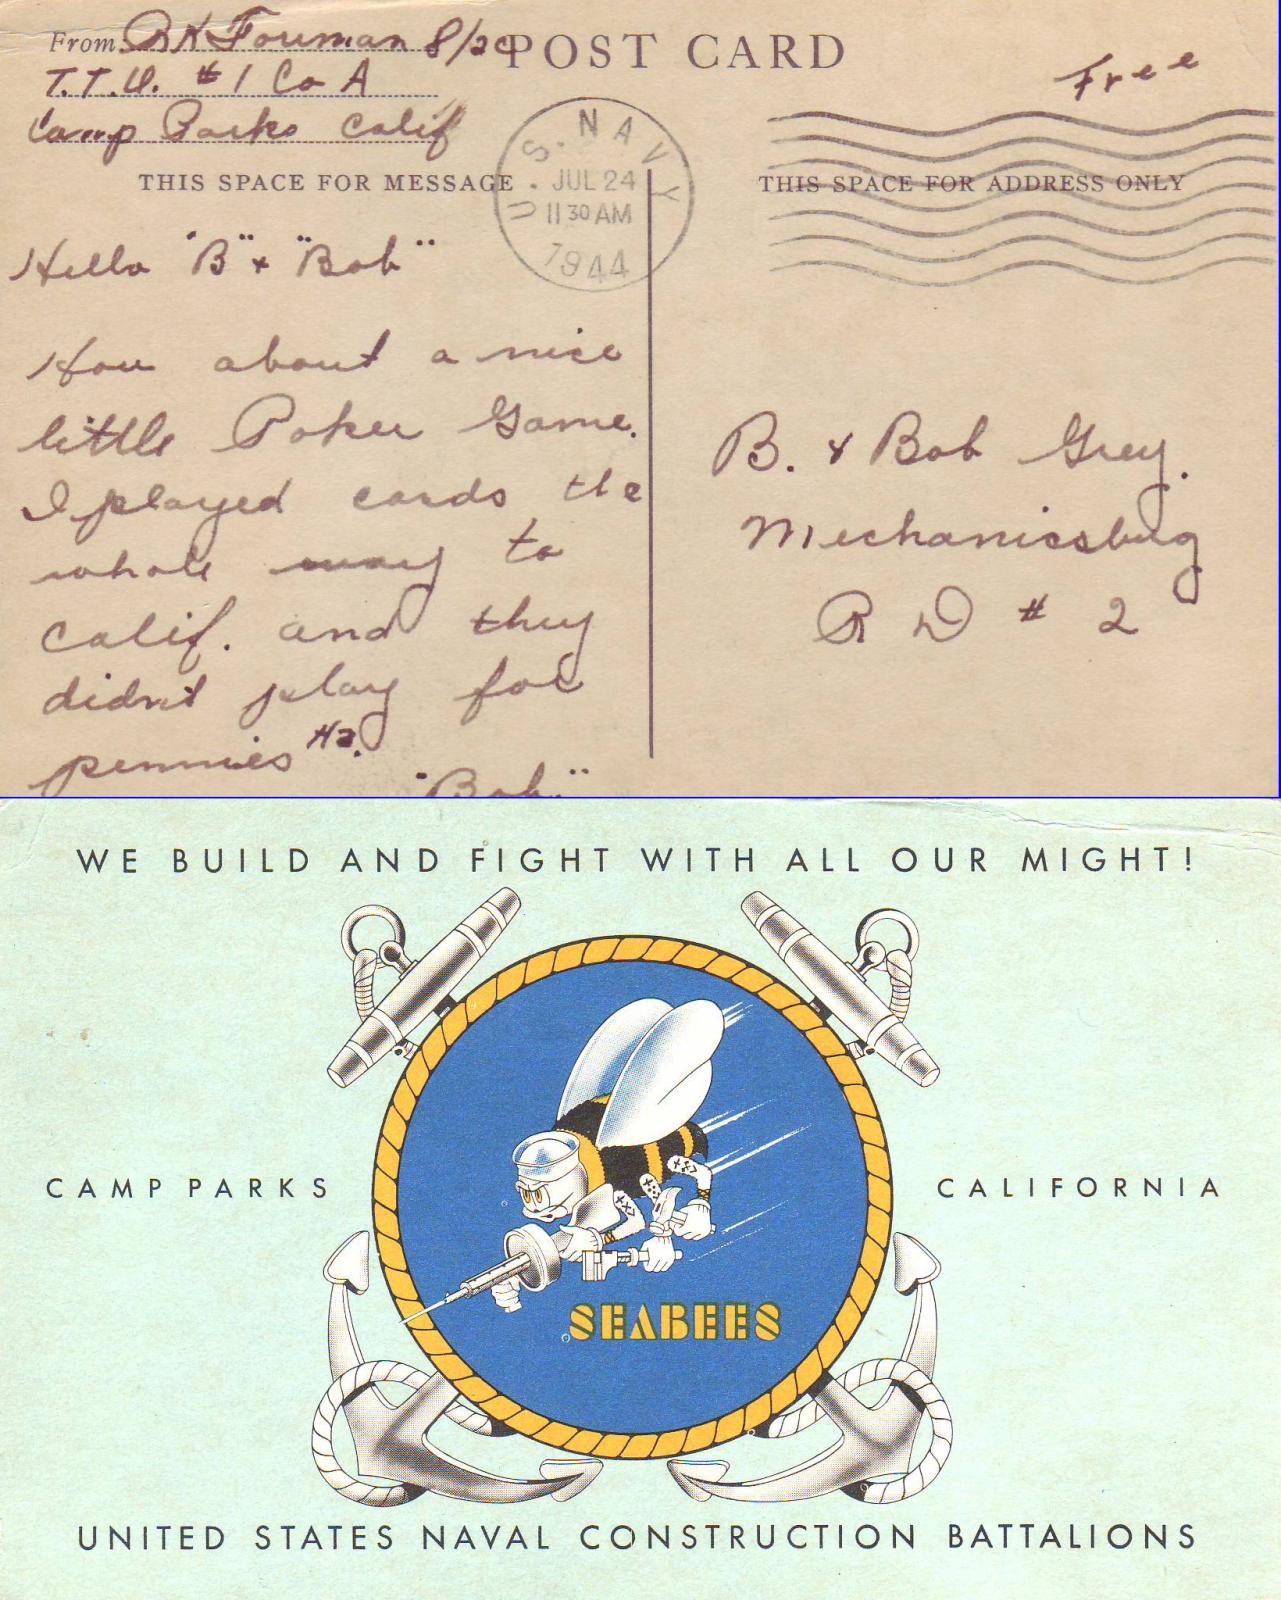 From R K Fouman S/2c
T.T.U. #1 Co A
Camp Parks Calif
POST CARD
Free
U.S. NAVY
JUL 24
11 30 AM
1944
THIS SPACE FOR MESSAGE
THIS SPACE FOR ADDRESS ONLY
Hello "B" + "Bob"
How about a nice
little Poker Game.
I played cards the
whole way to
Calif. and they
didn't play for
pennies Ha.
"Bob"
B. & Bob Grey.
Mechanicsburg
R D # 2
WE BUILD AND FIGHT WITH ALL OUR MIGHT!
CAMP PARKS
CALIFORNIA
SEABEES
UNITED STATES NAVAL CONSTRUCTION BATTALIONS